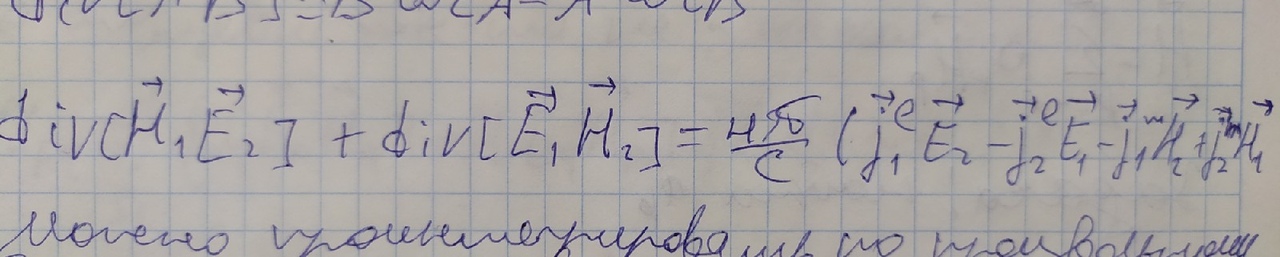 div[H⃗₁E⃗₂] + div[E⃗₁H⃗₂] = 4π/c (j⃗₁ᵉE⃗₂ − j⃗₂ᵉE⃗₁ − j⃗₁ᵐH⃗₂ + j⃗₂ᵐH⃗₁
Можно проинтегрировать по произвольному